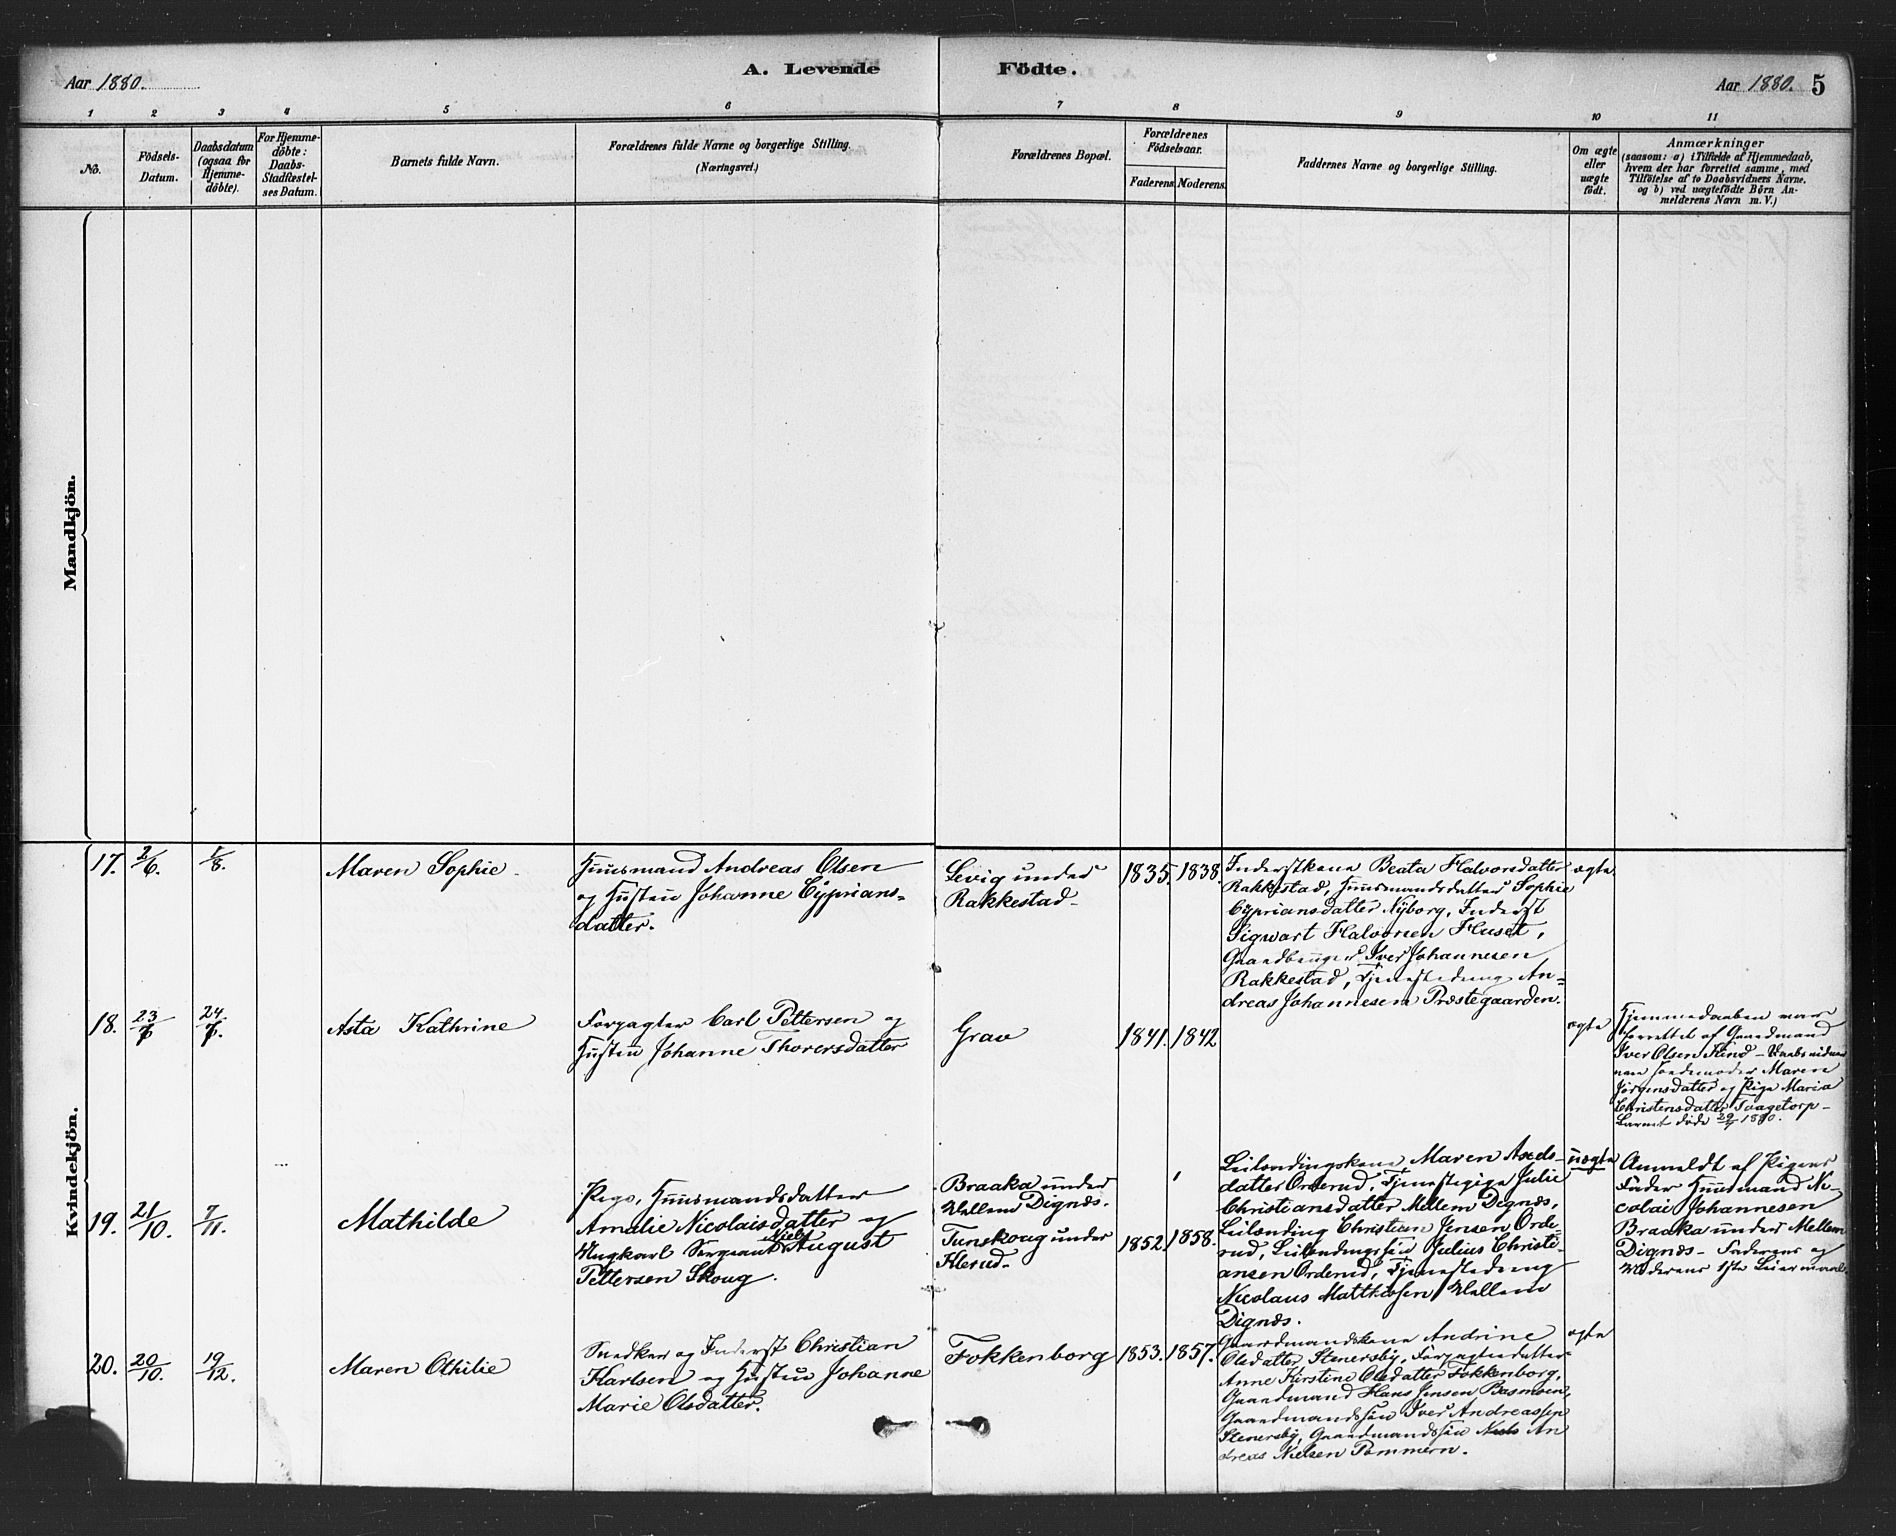 Aar 1880.
A. Levende Födte.
Aar 1880. 5
1 2 3 4 5 6 7 8 9 10 11
No.
Födsels-
Datum.
Daabsdatum
(ogsaa for
Hjemme-
döbte).
For Hjemme-
döbte:
Daabs-
Stadfæstel-
ses Datum.
Barnets fulde Navn.
Forældrenes fulde Navne og borgerlige Stilling.
(Næringsvei.)
Forældrenes Bopæl.
Forældrenes
Födselsaar.
Faderens. Moderens.
Faddernes Navne og borgerlige Stilling.
Om ægte
eller
uægte
födt.
Anmærkninger
(saasom: a) i Tilfælde af Hjemmedaab,
hvem der har forrettet samme, med
Tilföielse af to Daabsvidners Navne.
og b) ved uægtefödte Börn An-
melderens Navn m. V.)
Mandkjön.
Kvindekjön.
17. 2/6. 1/8.
Maren Sophie
Huusmand Andreas Olsen
og Hustru Johanne Cyprians-
datter.
Levig under
Rakkestad
1835. 1838.
Inderstkone Beata Halvorsdatter
Rakkestad, Huusmandsdatter Sophie
Cypriansdatter Nyborg, Inderst
Sigwart Halvorsen Huset,
Gaardbruger Iver Johannesen
Rakkestad, Tjenestedreng An-
dreas Johannesen Præstegaarden.
ægte
18. 23/7 24/7.
Asta Kathrine
Forpagter Carl Pettersen og
Hustru Johanne Thoversdatter
Grav
1841. 1842
ægte
Hjemmedaaben var
forrettet af Gaardmand
Iver Olsen Kind - Daabsvidner
vare Jordemoder Maren
Jörgensdatter og Pige Maria
Christensdatter Traagetorp -
Barnet döde 29/7 1880.
19. 21/10. 7/11.
Mathilde
Pige, Huusmandsdatter
Amalie Nicolaisdatter og
Ungkarl Sergeant Niels August
Pettersen Skoug.
Braaka under
Mellem Dignæs.
Tunskoug under
Klerud.
1852. 1858.
Leilændingskone Maren Axels-
datter Orderud, Tjenestepige Julie
Christiansdatter Mellem Dignæs,
Leilænding Christian Jensen Orde-
rud, Leilændingssön Julius Christi-
ansen Orderud, Tjenestedreng
Nicolaus Matthisen Mellem
Dignæs.
uægte
Anmeldt af Pigens
Fader Huusmand Ni-
colai Johannesen
Braaka under Mellem
Dignæs - Faderens og
Moderens 1ste Leiermaal.
20. 20/10. 19/12.
Maren Othilie
Snedker og Inderst Christian
Karlsen og Hustru Johanne
Marie Olsdatter.
Fokkenborg
1853. 1857.
Gaardmandskone Andrine
Olsdatter Stenersby, Forpagterdatter
Anne Kirstine Olsdatter Fokkenborg,
Gaardmand Hans Jensen Basmoen,
Gaardmandssön Iver Andreassen
Stenersby, Gaardmandssön Niels An
dreas Nielsen Pommern.
ægte